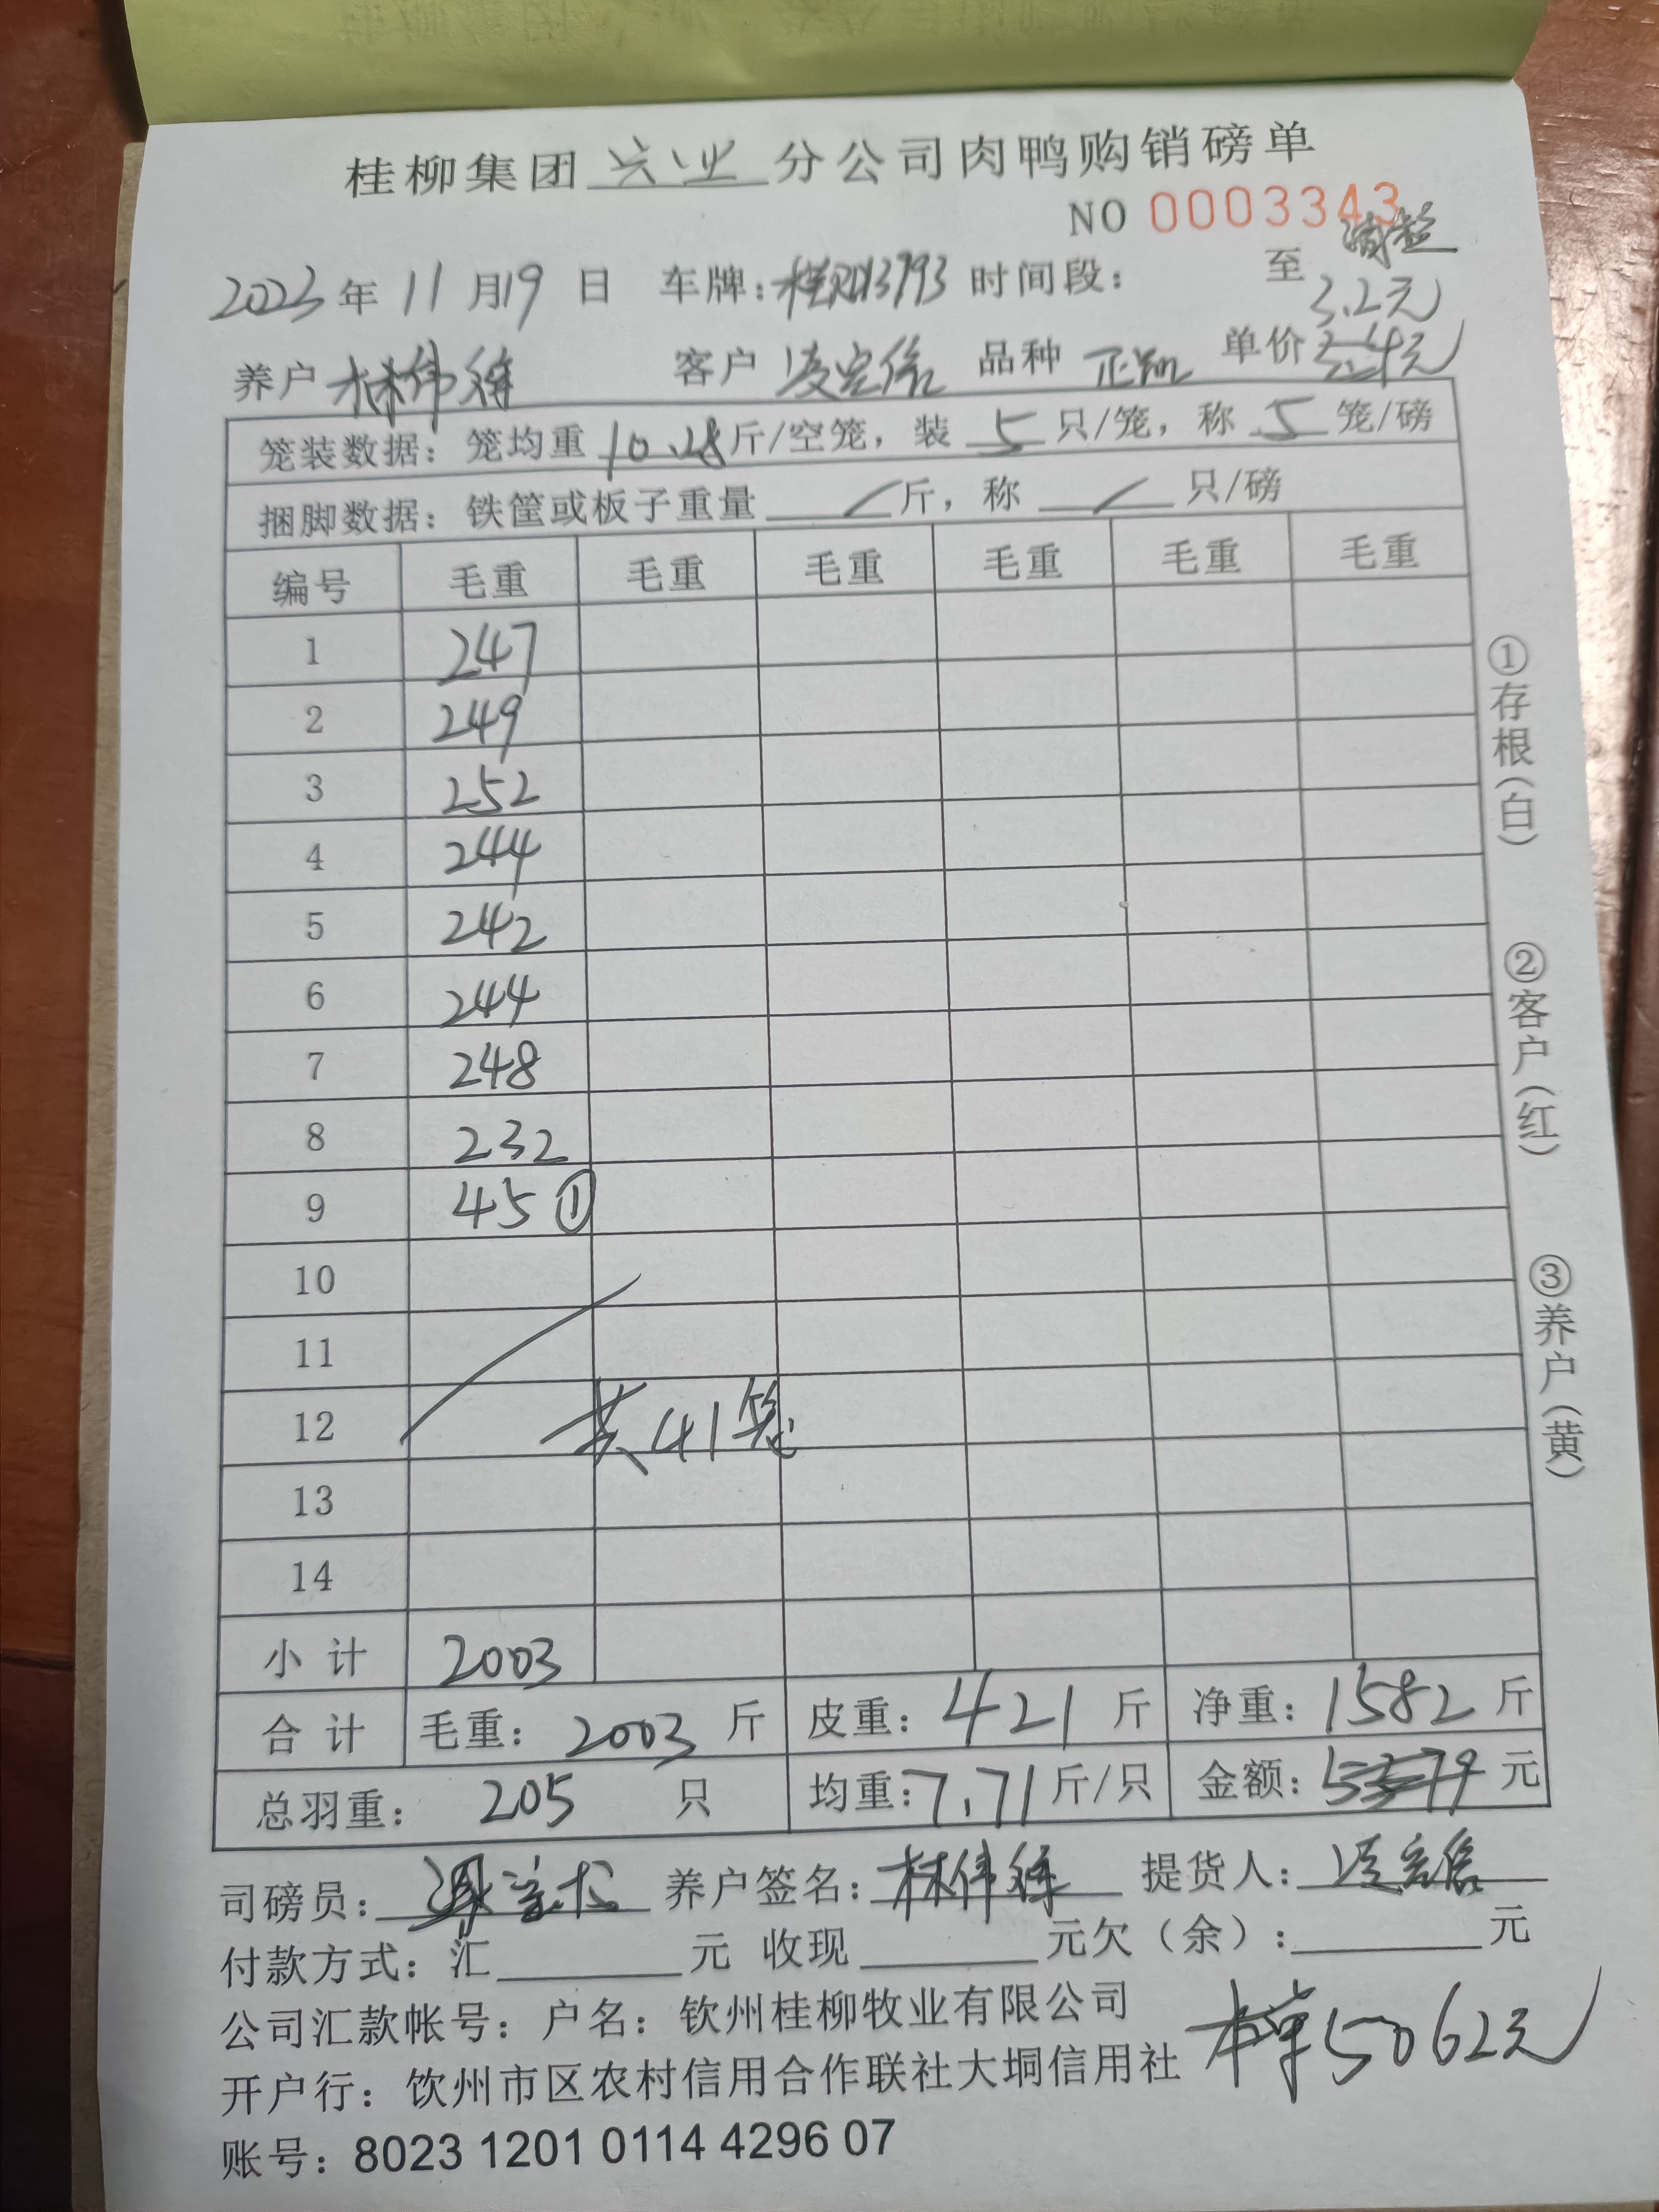 桂柳集团兴业分公司肉鸭购销磅单
NO 0003343
2023年11月19日 车牌: 时间段: 至
3.2元
养户林伟 客户凌定信 品种 单价
笼装数据:笼均重10.28斤/空笼,装5只/笼,称5笼/磅
捆脚数据:铁筐或板子重量/斤,称/只/磅
编号 毛重 毛重 毛重 毛重 毛重 毛重
1 247
2 249
3 252
4 244
5 242
6 244
7 248
8 232
9 45①
10
11
12 共41笼
13
14
小计 2003
合计 毛重:2003斤 皮重:421斤 净重:1582斤
总羽重:205只 均重:7.71斤/只 金额:5379元
司磅员: 养户签名:林伟 提货人:凌定信
付款方式:汇 元 收现 元欠(余): 元
公司汇款帐号:户名:钦州桂柳牧业有限公司
开户行:钦州市区农村信用合作联社大垌信用社
本单5062元
账号:8023 1201 0114 4296 07
①存根(白)
②客户(红)
③养户(黄)